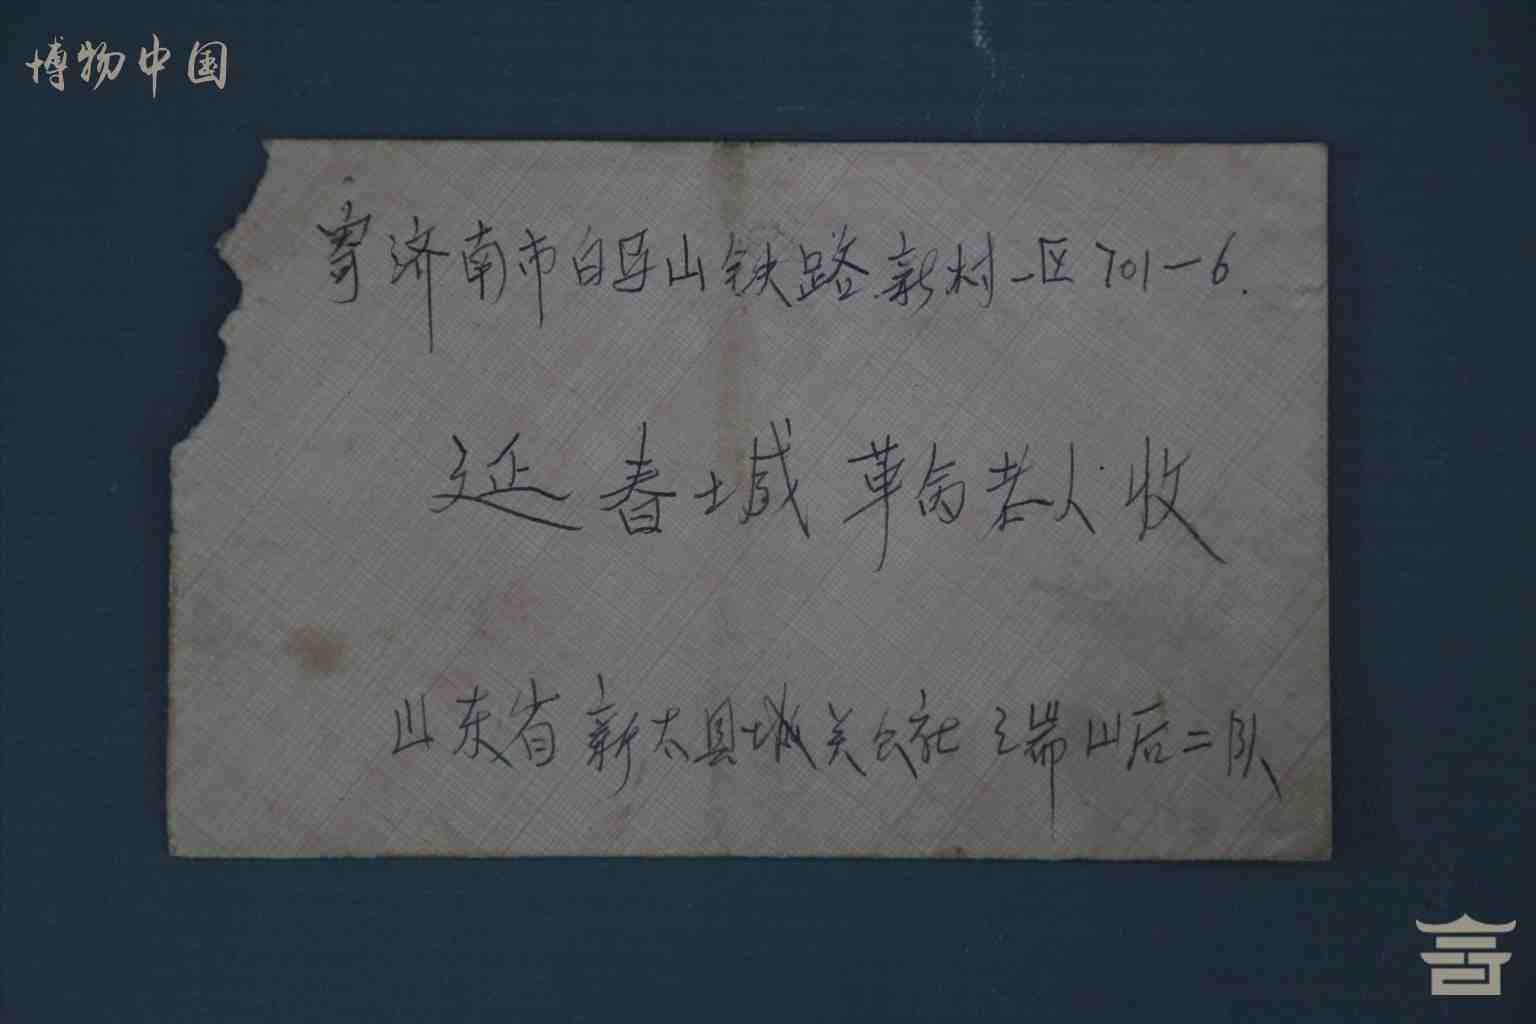 博物中国
寄济南市白马山铁路新村一区701-6.
延春城革命老人收
山东省新太县城关公社瑞山后二队